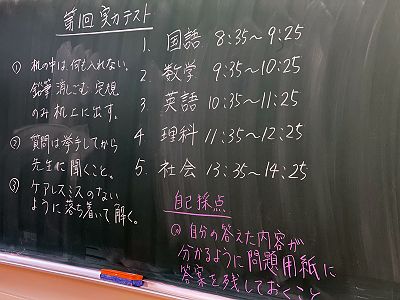 第1回 実力テスト
① 机の中は何も入れない。
鉛筆 消しごむ 定規
のみ机上に出す。
② 質問は挙手してから
先生に聞くこと。
③ ケアレスミスのない
ように落ち着いて解く。
1. 国語 8:35～9:25
2. 数学 9:35～10:25
3 英語 10:35～11:25
4 理科 11:35～12:25
5. 社会 13:35～14:25
自己採点
◎ 自分の答えた内容が
分かるように問題用紙に
答案を残しておくこと